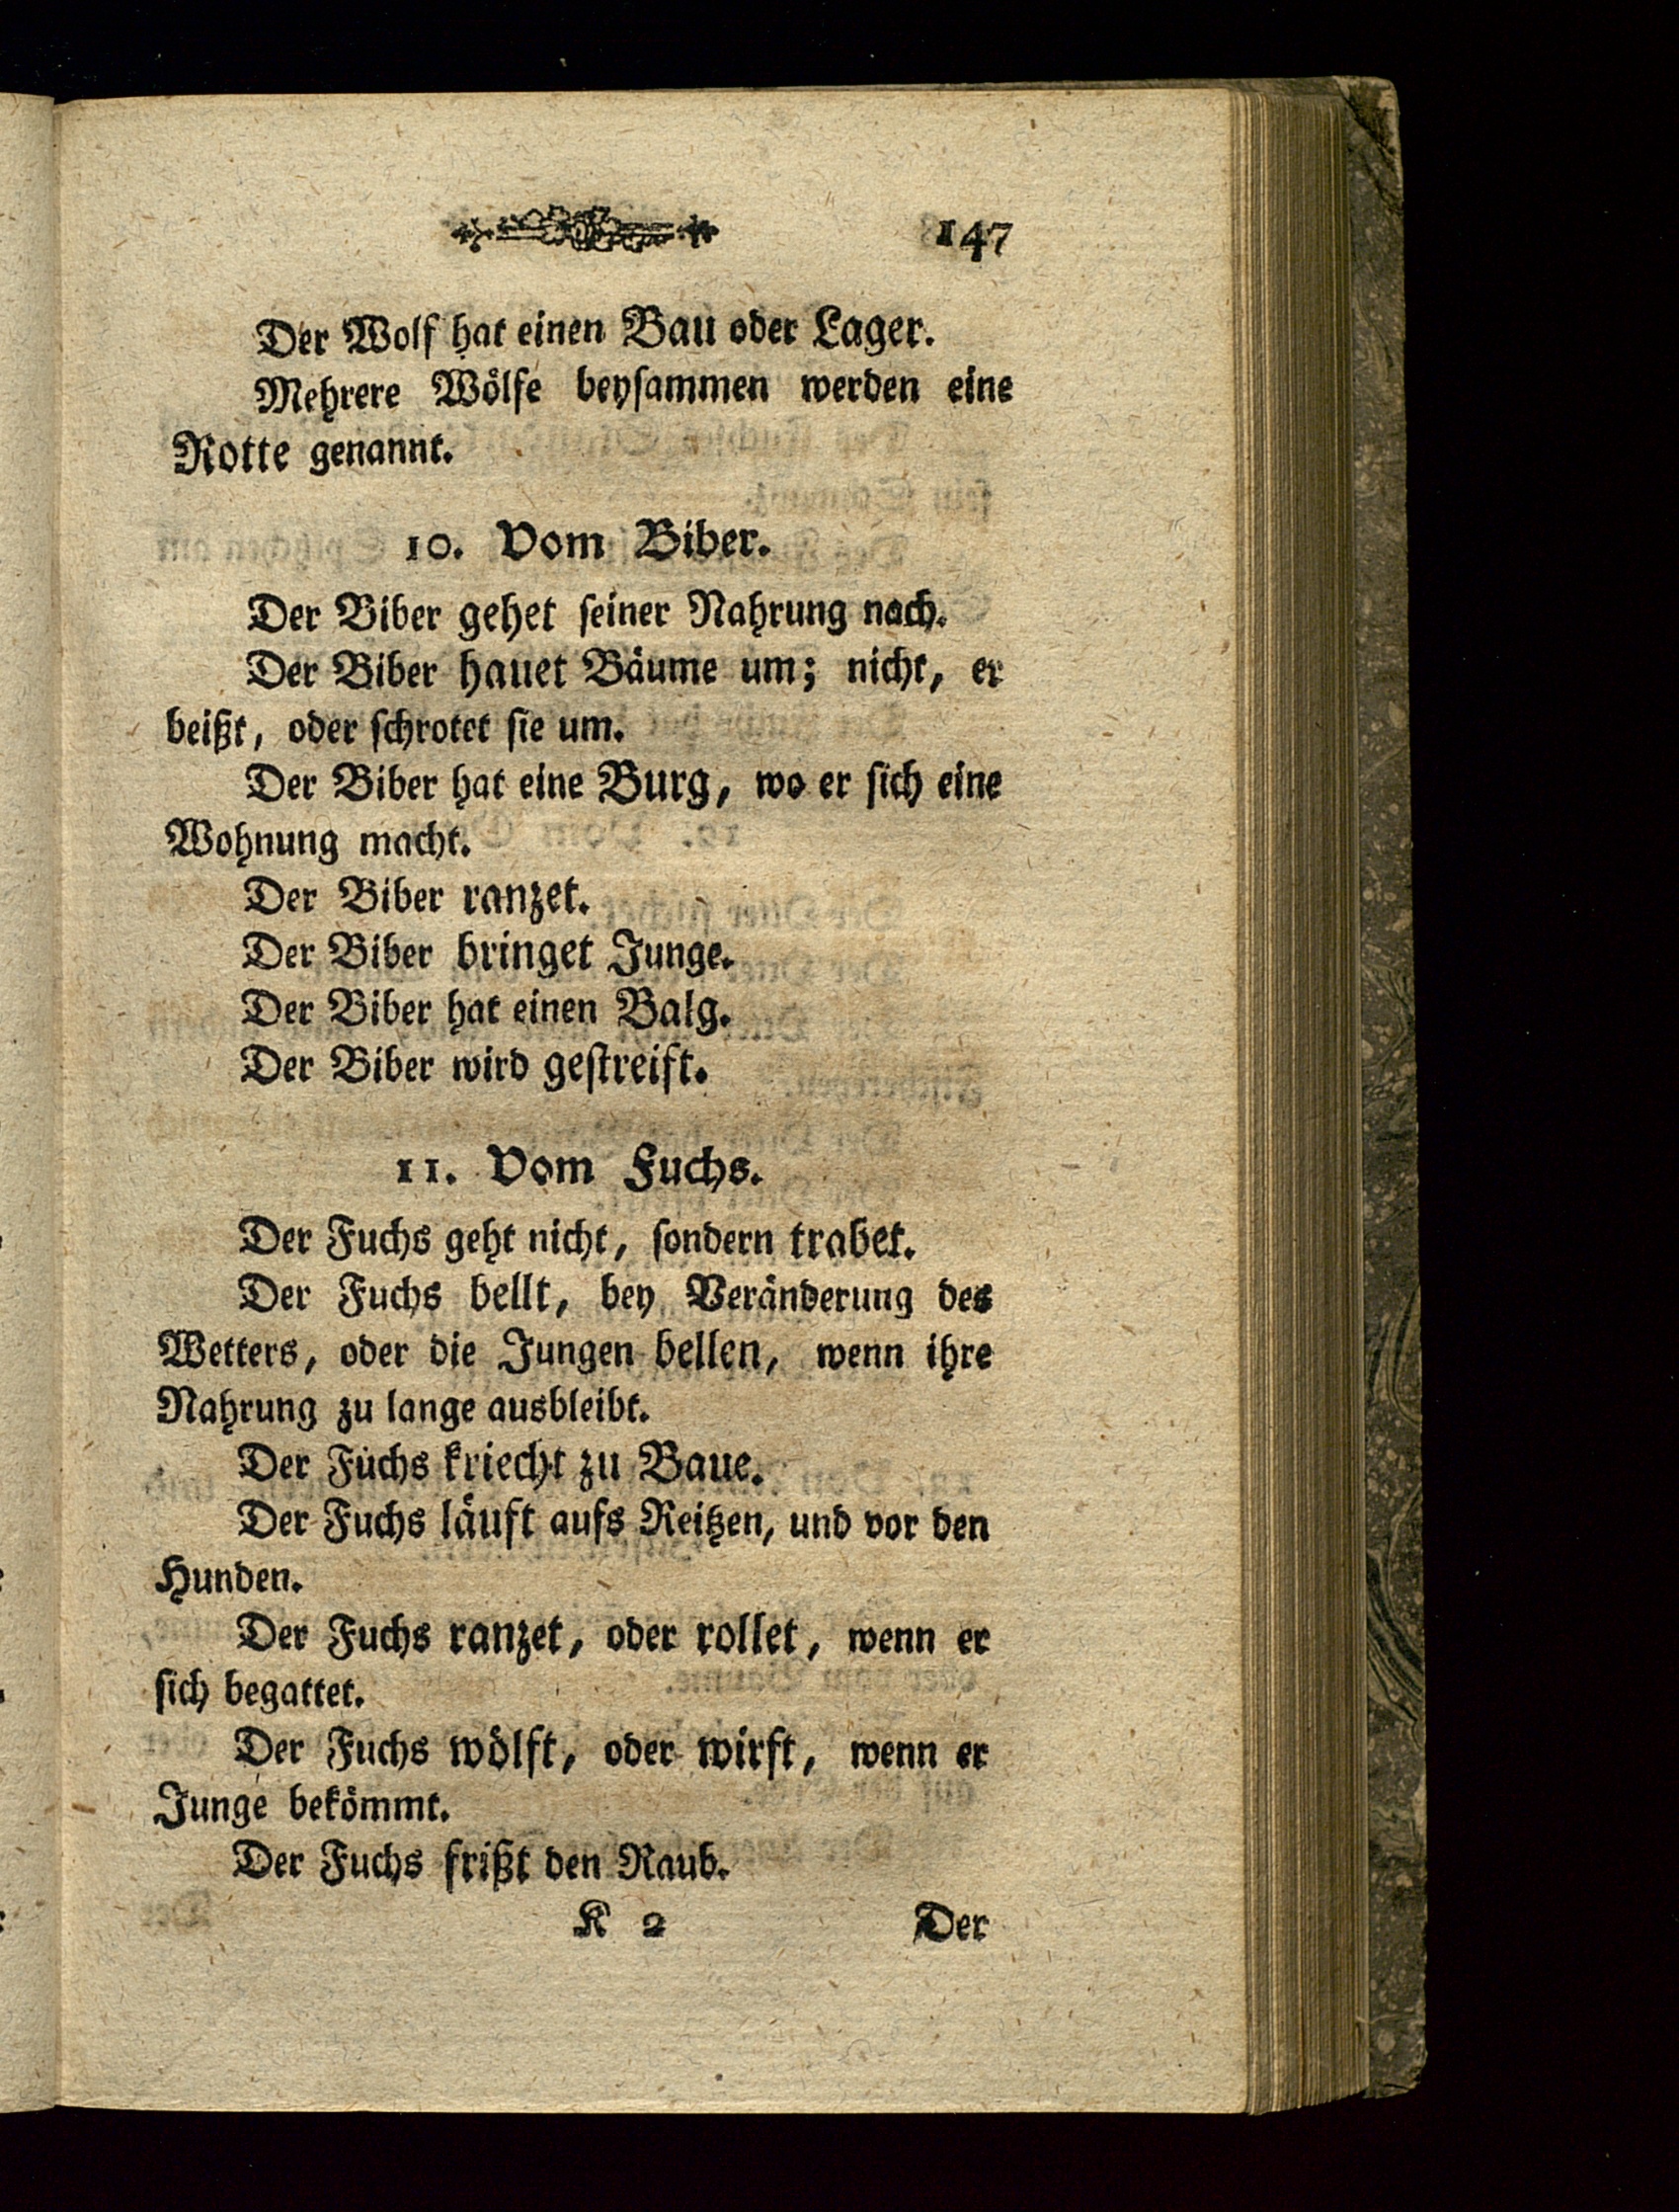 147
Der Wolf hat einen Bau oder Lager.
Mehrere Wölfe beysammen werden eine
Rotte genannt.
10. Vom Biber.
Der Biber gehet seiner Nahrung nach.
Der Biber hauet Bäume um; nicht, er
beißt, oder schrotet sie um.
Der Biber hat eine Burg, wo er sich eine
Wohnung macht.
Der Biber ranzet.
Der Biber bringet Junge.
Der Biber hat einen Balg.
Der Biber wird gestreift.
11. Vom Fuchs.
Der Fuchs geht nicht, sondern trabet.
Der Fuchs bellt, bey Veränderung des
Wetters, oder die Jungen bellen, wenn ihre
Nahrung zu lange ausbleibt.
Der Fuchs kriecht zu Baue.
Der Fuchs läuft aufs Reitzen, und vor den
Hunden.
Der Fuchs ranzet, oder rollet, wenn er
sich begattet.
Der Fuchs wölft, oder wirft, wenn er
Junge bekömmt.
Der Fuchs frißt den Raub.
K 2 Der